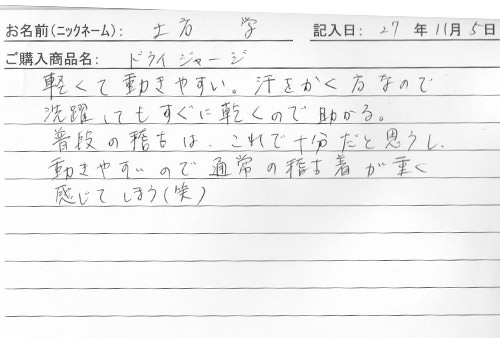 お名前(ニックネーム): 土方 学 記入日: 27 年 11月 5日
ご購入商品名: ドライジャージ
軽くて動きやすい。汗をかく方なので
洗濯してもすぐに乾くので助かる。
普段の稽古は、これで十分だと思うし、
動きやすいので通常の稽古着が重く
感じてしまう(笑)